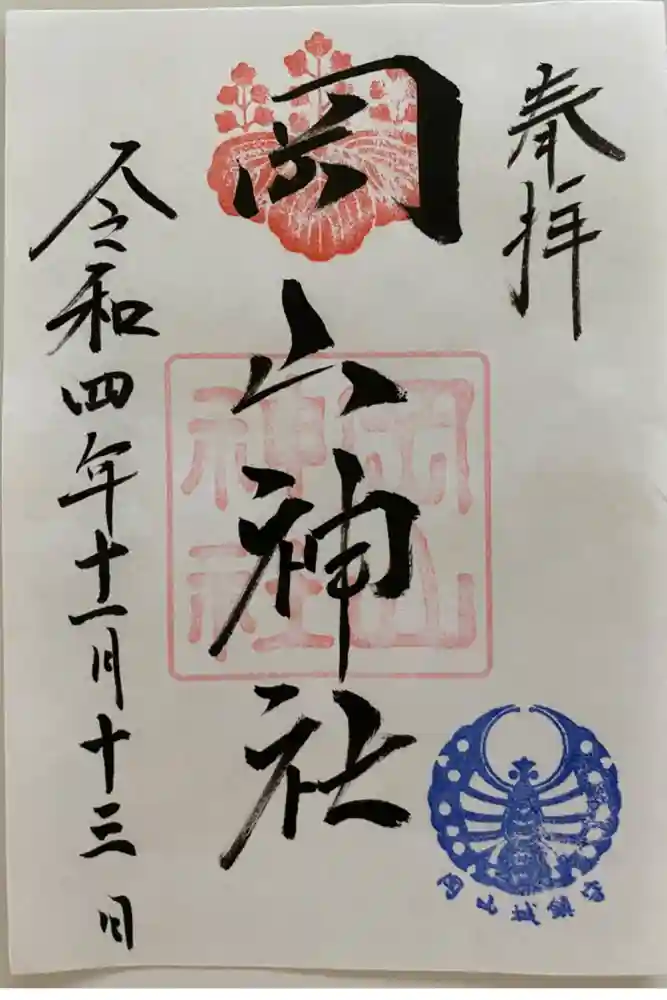 奉拝
岡山神社
岡山
神社
令和四年十一月十三日
岡山城鎮守